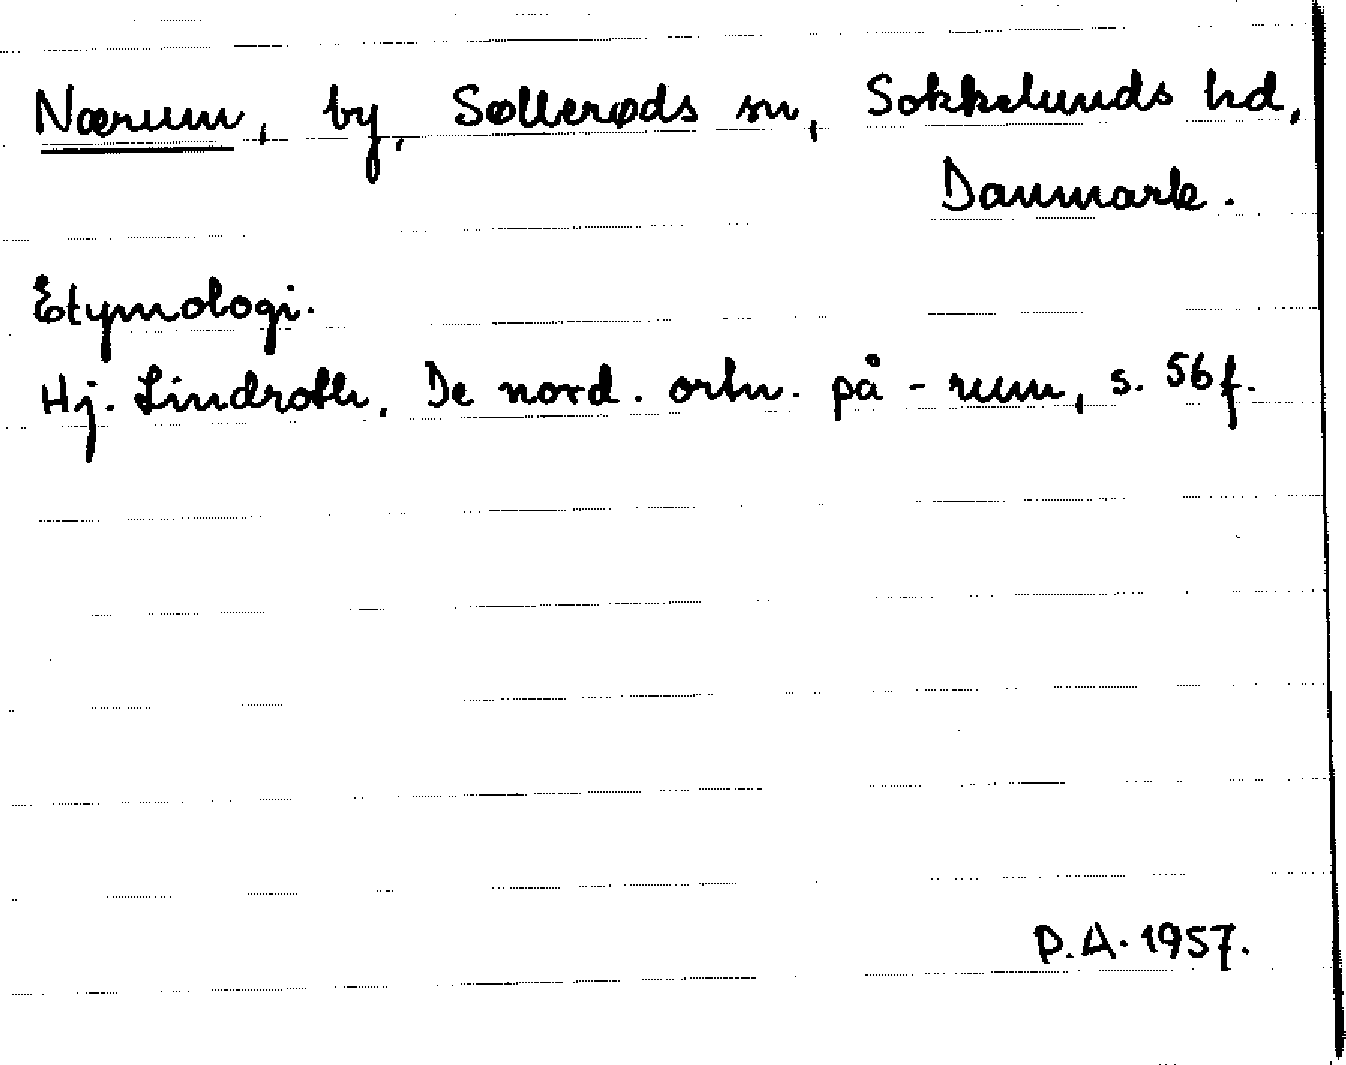 Nærum, by, Søllerøds sn, Sokkelunds hd,
Danmark.
Etymologi.
Hj. Lindroth, De nord. ortn. på -rum, s. 56f.
P.A. 1957.